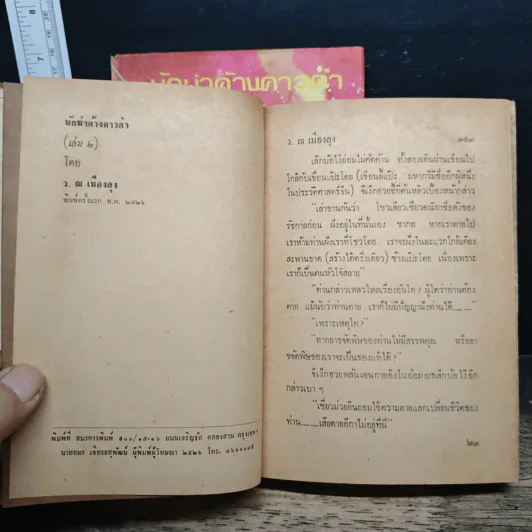 8
7
นักฆ่าค้างคาวดำ
นักฆ่าค้างคาวดำ
(เล่ม ๒)
โดย
ว. ณ เมืองลุง
พิมพ์ครั้งแรก พ.ศ. ๒๕๒๖
พิมพ์ที่ อมรการพิมพ์ ๕๐๐/๑๕-๑๖ ถนนเจริญรัถ คลองสาน กรุงเทพฯ
นายอมร เจียรธสุพัฒน์ ผู้พิมพ์ผู้โฆษณา ๒๕๒๖ โทร.
ว. ณ เมืองลุง
เล็กบ้อไง้ย่อมไม่คัดค้าน ทั้งสองเดินผ่านเขื่อนไป
ใกล้กับเขื่อนแป๊ะโตย (เขื่อนลี้แป๊ะ มหากวีมีชื่ออีกผู้หนึ่ง
ในประวัติศาสตร์จีน) จีเง็กฮวยชี้ที่ดินหลังเบื้องหน้ากล่าว
"เล่าขานกันว่า โซวเสียวเซี่ยวคณิกาชื่อดังของ
รัชกาลก่อน ฝังอยู่ในที่นั้นเอง ซากอ หากเราตายไป
เราห้ามท่านฝังเราที่โซวโตย เราจะฝังในละแวกใกล้เคียง
สะพานขาด (สร้างได้ครึ่งเดียว) ข้างแป๊ะโตย เนื่องเพราะ
เราก็เป็นคนหัวใจสลาย"
"ท่านกล่าวเหลวไหลเรื่องอันใด ? ผู้ใดว่าท่านต้อง
ตาย แม้นับว่าท่านตาย เราก็ไม่มีปัญญาฝังท่านได้........"
"เพราะเหตุใด ?"
"หากยาขจัดพิษของท่านไม่มีสรรพคุณ หรือยา
ขจัดพิษของเราจะเป็นของแท้ได้ ?"
จีเง็กฮวยพลันเอนกายอิงในอ้อมอกเล็กบ้อไง้อีก
กล่าวเบา ๆ
"เซี่ยวม่วยยินยอมใช้ความตายแลกเปลี่ยนชีวิตของ
ท่าน........เสียดายอีกาไม่อยู่ที่นี่"
๒๓